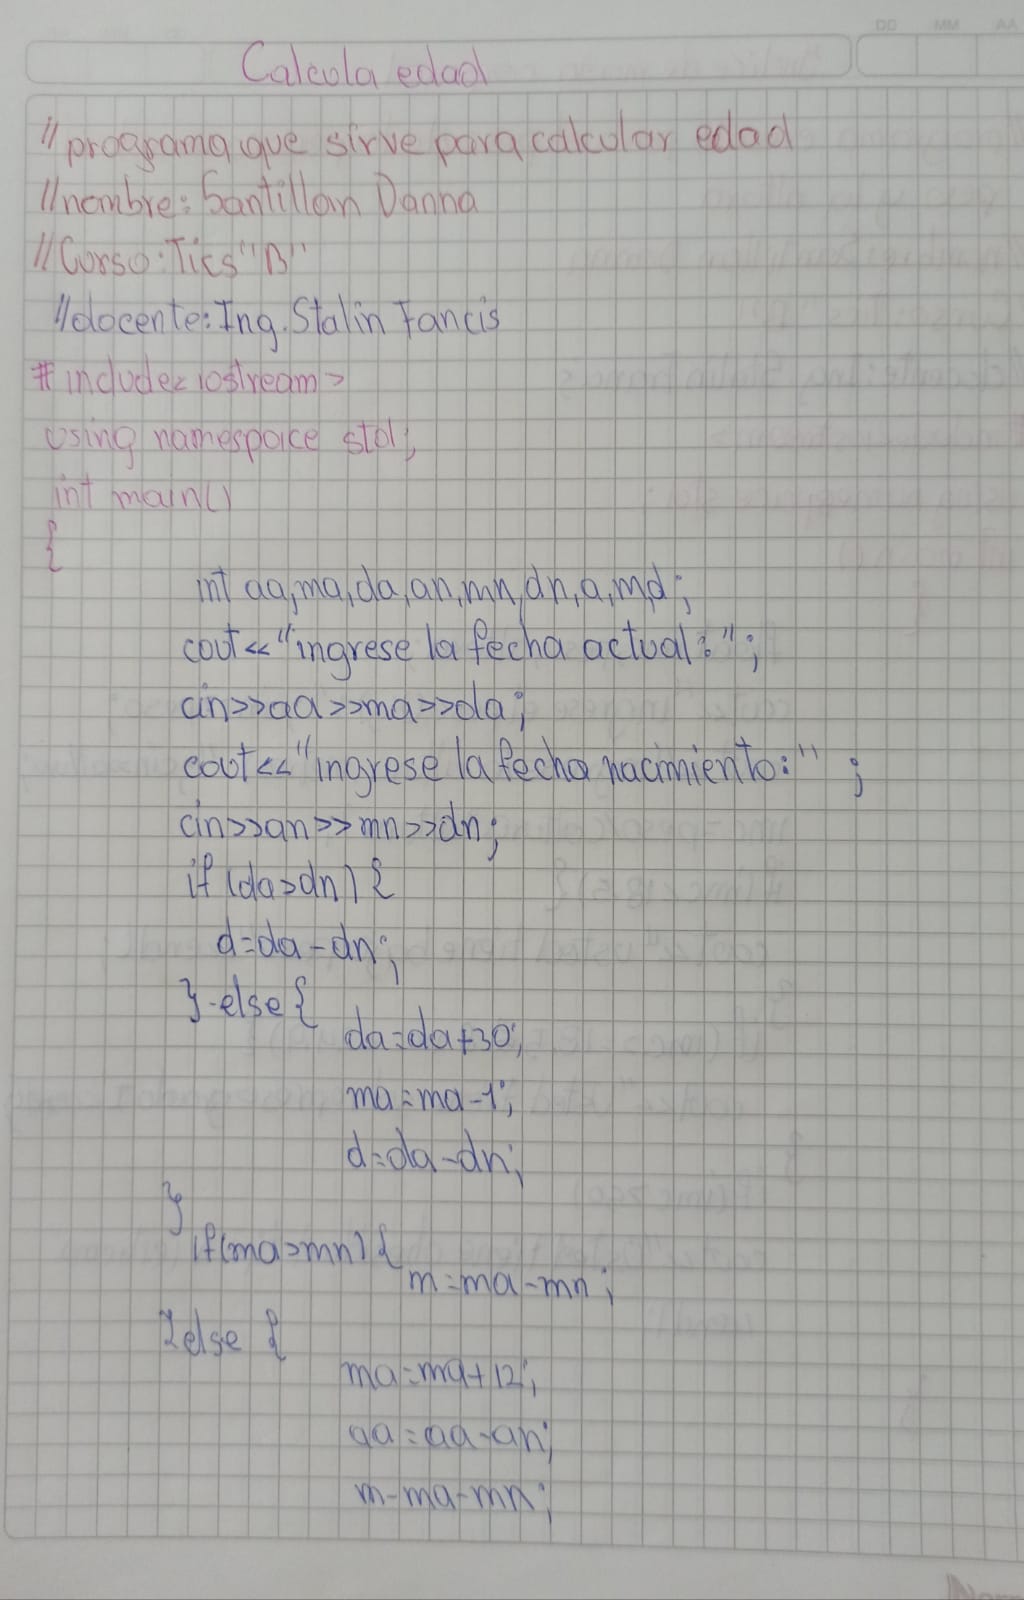 DD MM AA
Calcula edad
//programa que sirve para calcular edad
//nombre: Santillan Danna
//Curso: Tics "B"
//docente: Ing. Stalin Fancis
#include<iostream>
using namespace std;
int main()
{
int aa,ma,da,an,mn,dn,a,m,d;
cout<<"ingrese la fecha actual:";
cin>>aa>>ma>>da;
cout<<"ingrese la fecha nacimiento:" ;
cin>>an>>mn>>dn;
if (da>dn) {
d=da-dn;
}else{
da=da+30;
ma=ma-1;
d=da-dn;
}
if(ma>mn){
m=ma-mn;
}else {
ma=ma+12;
aa=aa-an;
m-ma-mn;